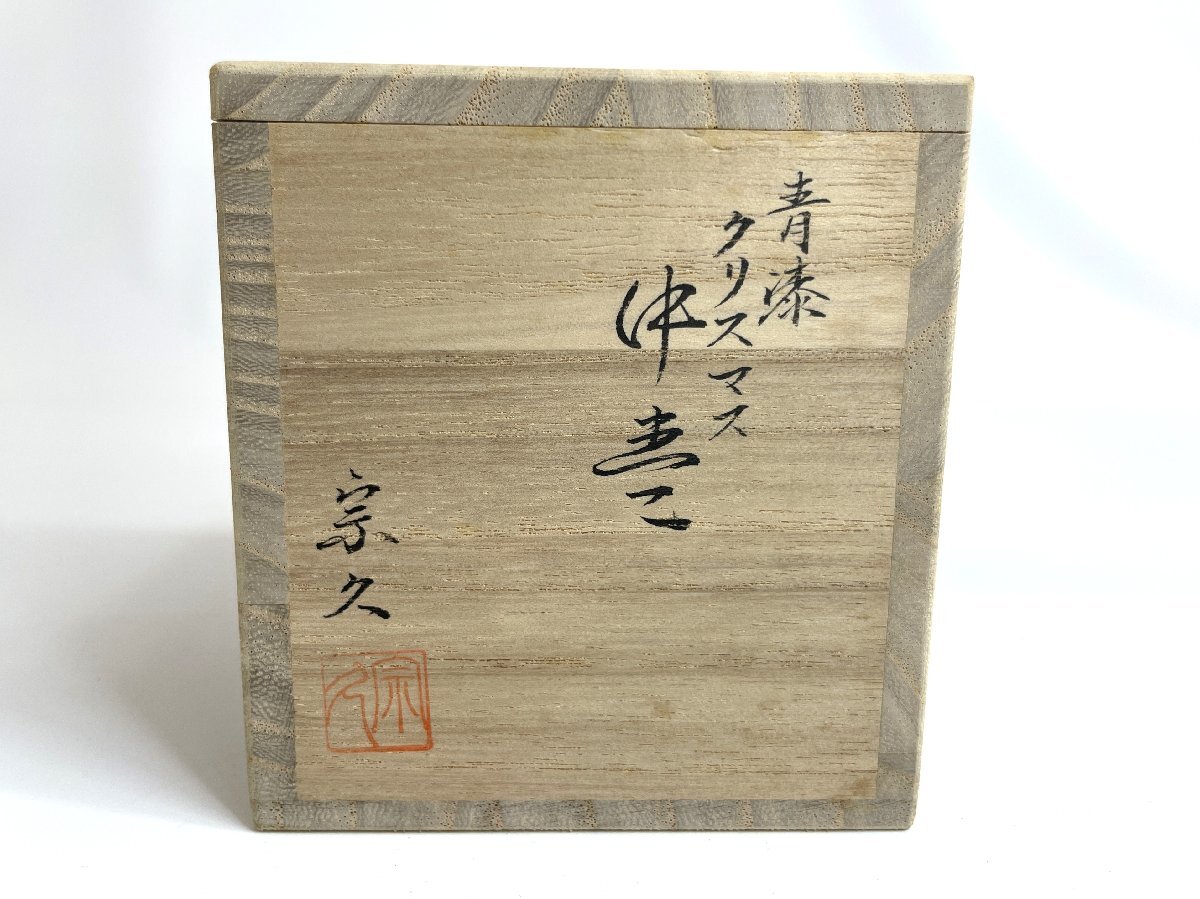 青漆
クリスマス
中棗
宗久
宗久